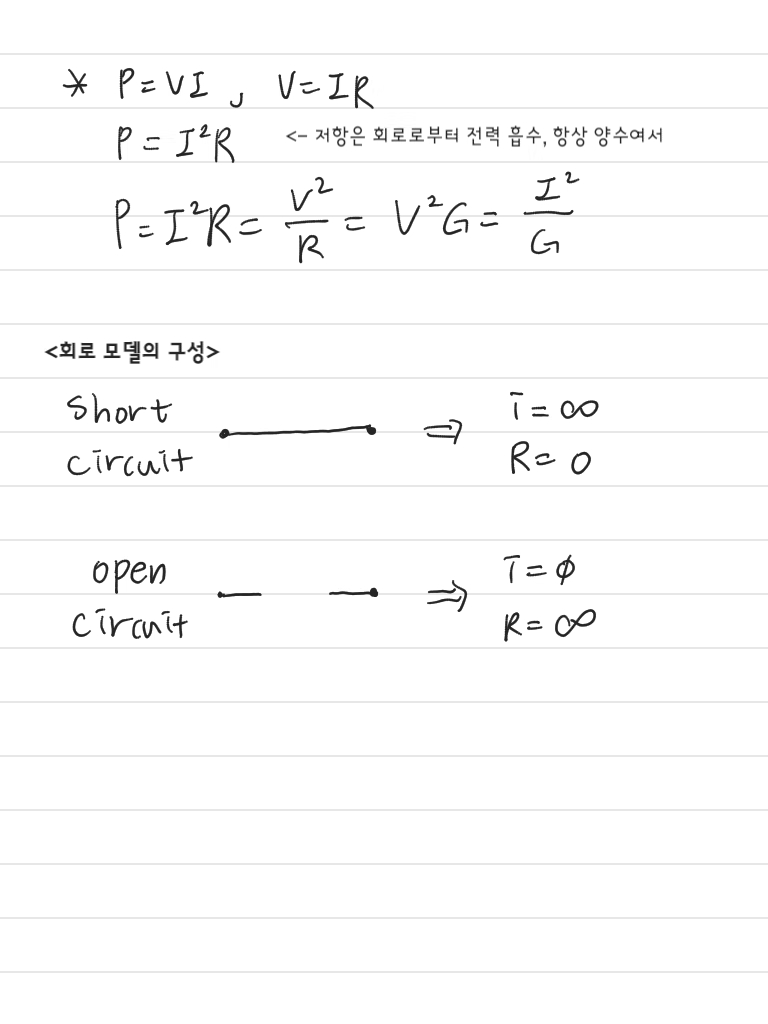 * P = VI , V = IR
P = I²R <- 저항은 회로로부터 전력 흡수, 항상 양수여서
P = I²R = V²/R = V²G = I²/G
<회로 모델의 구성>
short circuit ⇒ i = ∞
R = 0
open circuit ⇒ i = ϕ
R = ∞